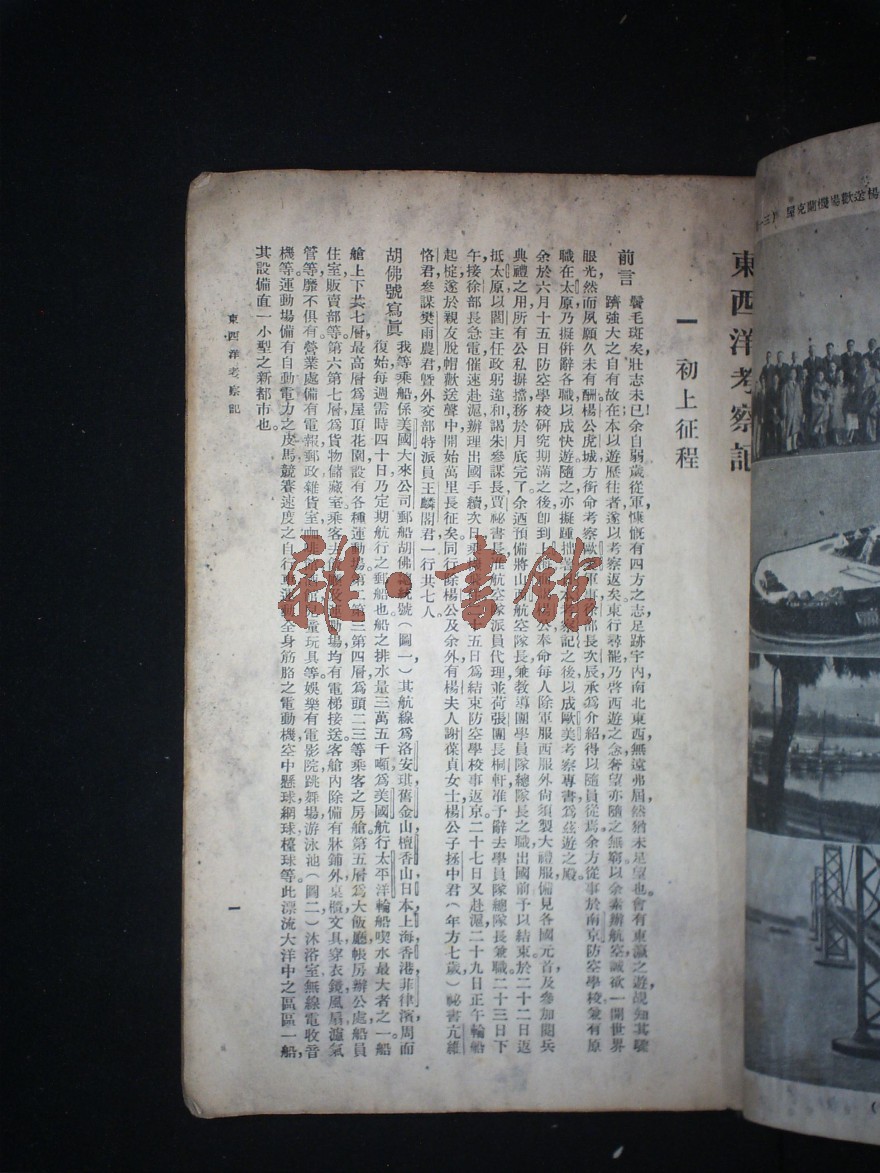 東西洋考察記
一 初上征程
前言 鬢毛斑矣壯志未已余自弱歲從軍慷慨有四方之志足跡宇內南北東西無遠弗屆然猶未足望也會有東瀛之遊覘知其驟
躋強大之自有故在本以遊歷往者遂以考察返矣東行尋罷乃啓西遊之念奢望亦隨之無窮以余素辦航空誠欲一開世界
眼光然而夙願久未有酬楊公虎城方銜命考察歐 軍事 部長次辰承為介紹得以隨員從焉余方從事於南京防空學校兼有原
職在太原乃擬倂辭各職以成快遊隨之亦擬踵拙 察記之後以成歐美考察專書為茲遊之殿
余於六月十五日防空學校研究期滿之後卽到上 公奉命每人除軍服西服外尙須製大禮服備見各國元首及參加閱兵
典禮之用所有公私摒擋務於月底完了余迺預備將山 航空隊長兼教導團學員隊總隊長之職出國前予以結束於二十二日返
抵太原以閻主任政躬違和謁朱參謀長賈祕書長 航空隊派員代理並荷張團長桐軒准予辭去學員隊總隊長兼職二十三日下
午接徐部長急電催速赴滬辦理出國手續次日乘 五日為結束防空學校事返京二十七日又赴滬二十九日正午輪船
起椗遂於親友脫帽歡送聲中開始萬里長征矣同行除楊公及余外有楊夫人謝葆貞女士楊公子拯中君（年方七歲）祕書亢維
恪君參謀樊雨農君曁外交部特派員王麟閣君一行共七人
胡佛號寫眞 我等乘船係美國大來公司郵船胡佛總統號（圖一）其航線為洛安琪舊金山檀香山日本上海香港菲律濱周而
復始每週需時四十日乃定期航行之郵船也船之排水量三萬五千噸為美國航行太平洋輪船喫水最大者之一船
艙上下共七層最高層為屋頂花園設有各種運動場第二第三第四層為頭二三等乘客之房艙第五層為大飯廳帳房辦公處船員
住室販賣部等第六第七層為貨物儲藏室乘客去 及運動場均有電梯接送客艙內除備有牀鋪外桌櫃文具穿衣鏡風扇濾氣
管等靡不俱有營業處備有電報郵政雜貨室咖啡 兒童玩具等娛樂有電影院跳舞場游泳池（圖二）沐浴室無線電收音
機等運動場備有自動電力之皮馬競賽速度之自行車運動全身筋胳之電動機空中懸球網球檯球等此漂流大洋中之區區一船
其設備直一小型之新都市也
東西洋考察記
一
雜·書館